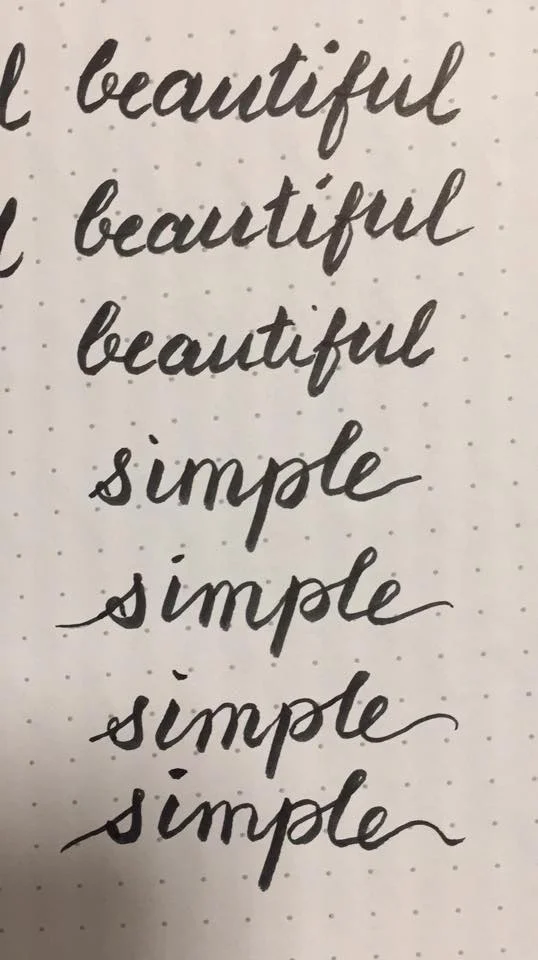 beautiful
beautiful
beautiful
simple
simple
simple
simple